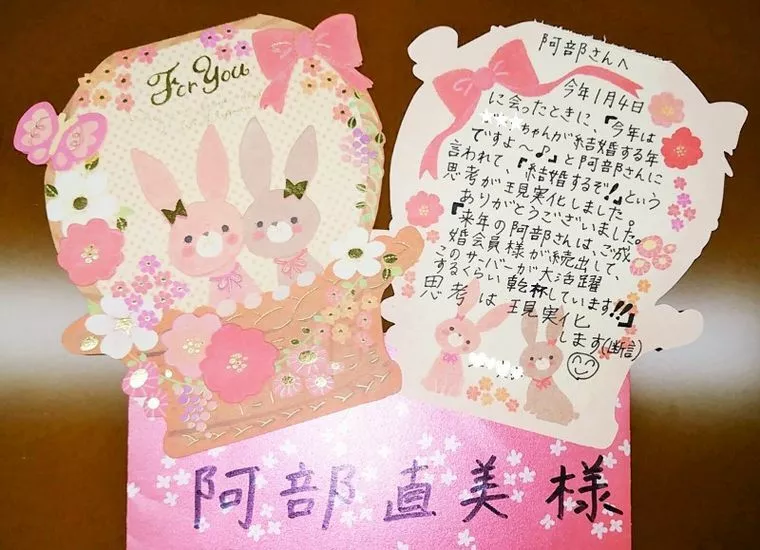 For You
阿部さんへ
今年1月4日
に会ったときに、『今年は
ちゃんが結婚する年
ですよ～♪』と阿部さんに
言われて、『結婚するぞ!』という
思考が現実化しました。
ありがとうございました。
『来年の阿部さんは、ご成
婚会員様が続出して、
このサーバーが大活躍
するくらい乾杯しています!!』
思考は現実化
します(断言)
阿部直美様